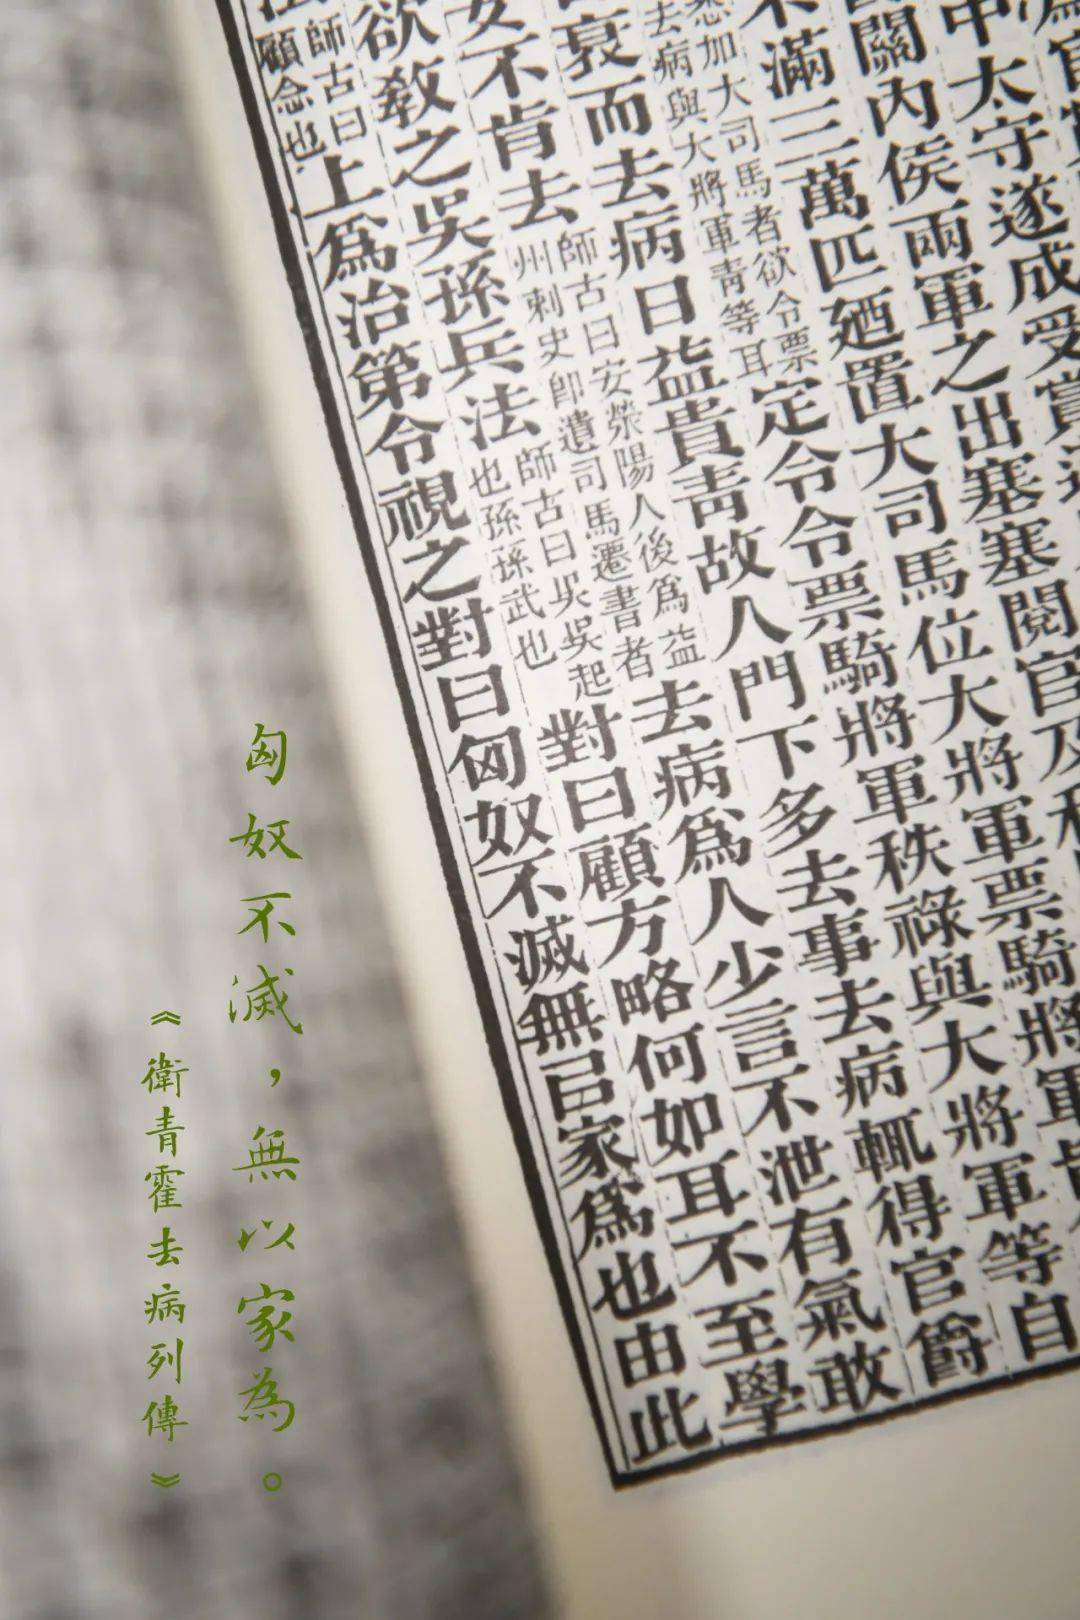 爲官賞
中太守遂成受賞遂
關內侯兩軍之出塞塞閱官及私
不滿三萬匹廼置大司馬位大將軍票騎將軍皆
悉加大司馬者欲令票
去病與大將軍青等耳
定令令票騎將軍秩祿與大將軍等自
衰而去病日益貴靑故人門下多去事去病輒得官爵
安不肯去
師古曰安滎陽人後爲益
州刺史卽遺司馬遷書者
去病爲人少言不泄有氣敢
欲敎之吳孫兵法
師古曰吳吳起
也孫孫武也
對曰顧方略何如耳不至學
法
師古曰
顧念也
上爲治第令視之對曰匈奴不滅無㠯家爲也由此
匈奴不滅，無以家為。
《衛青霍去病列傳》